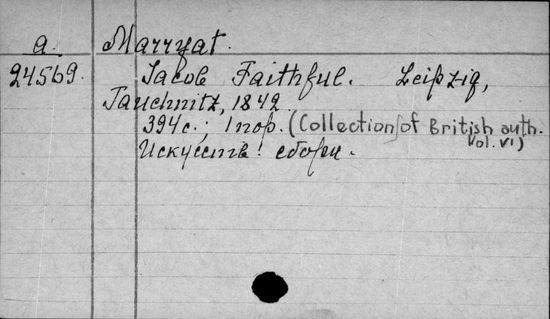 a. Marryat.
24569. Jacob Faithful. Leipzig,
Tauchnitz, 1842.
394 с.; 1 пор. (Collection of British auth.
Vol. VI)
Искусств. сборн.